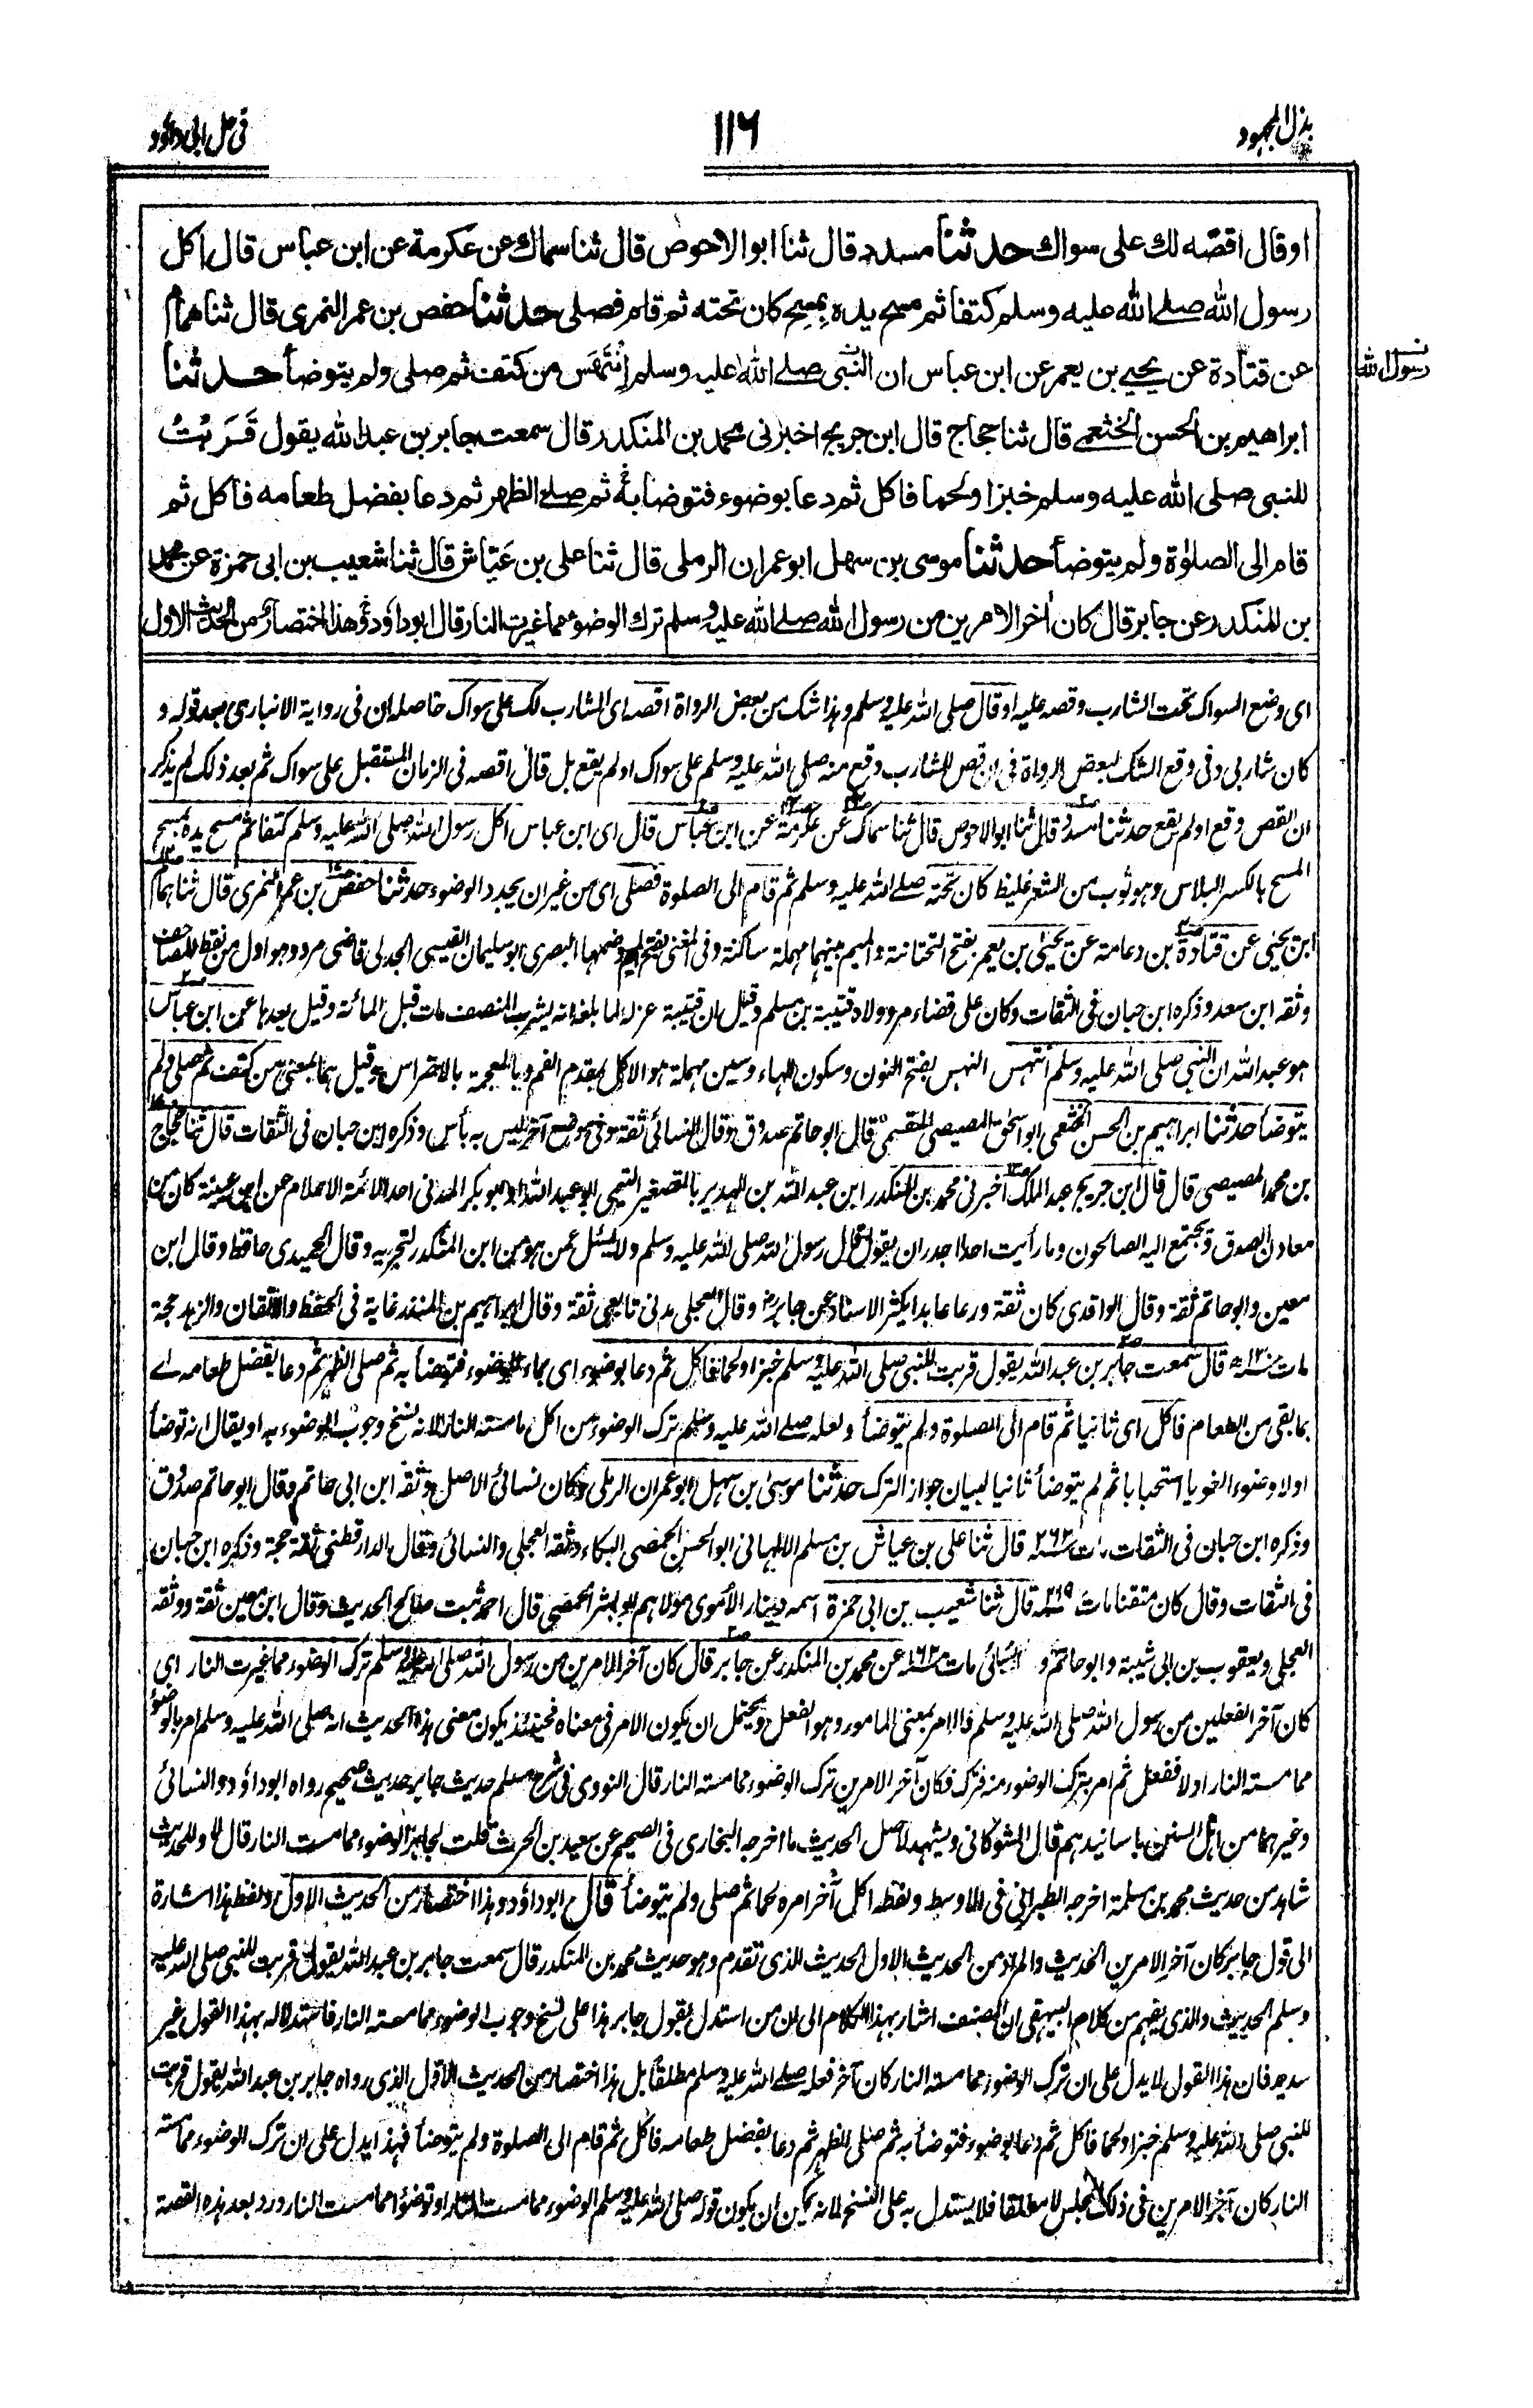 بذل المجهود
١١٦
فی حل ابی داؤد
او قال اقصّه لك على سواك حدثنا مسدد قال ثنا ابوالاحوص قال ثنا سماك عن عكرمة عن ابن عباس قال اكل
رسول الله صلے الله عليه وسلم كتفا ثم مسح يده بِمِسْحٍ كان تحته ثم قام فصلى حدثنا حفص بن عمر النمرى قال ثنا همام
عن قتادة عن يحيے بن يعمر عن ابن عباس ان النبى صلے الله عليه وسلم اِنْتَهَسَ من كتف ثم صلى ولم يتوضأ حدثنا
رسول الله
ابراهيم بن الحسن الخثعمى قال ثنا حجاج قال ابن جريج اخبرنى محمد بن المنكدر قال سمعت جابر بن عبد الله يقول قَرَّبْتُ
للنبى صلى الله عليه وسلم خبزا ولحما فاكل ثم دعا بوضوء فتوضأ به ثم صلے الظهر ثم دعا بفضل طعامه فاكل ثم
قام الى الصلوٰة ولم يتوضأ حدثنا موسى بن سهل ابو عمران الرملى قال ثنا على بن عَيّاش قال ثنا شعيب بن ابى حمزة عن محمد
بن المنكدر عن جابر قال كان اٰخر الامرين من رسول الله صلے الله عليه وسلم ترك الوضوء مما غيرت النار قال ابوداؤد وهذا اختصار من الحديث الاول
ای وضع السواک تحت الشارب وقصه علیه او قال صلی الله علیه وسلم وہذا شک من بعض الرواة اقصه ای الشارب لک علی سواک حاصله ان فی روایة الانباری بعد قوله و
کان شاربی وفی وقع الشک لبعض الرواة فی ان قص الشارب وقع منه صلی الله علیه وسلم علی سواک او لم یقع بل قال اقصه فی الزمان المستقبل علی سواک ثم بعد ذلک لم یذکر
ان القص وقع او لم یقع حدثنا مسدد قال ثنا ابوالاحوص قال ثنا سماک عن عکرمة عن ابن عباس قال ای ابن عباس اکل رسول الله صلی الله علیه وسلم کتفا ثم مسح یده بمسح
المسح بالکسر البلاس وہو ثوب من الشعر غلیظ کان تحته صلے الله علیه وسلم ثم قام الی الصلوة فصلی ای من غیر ان یجدد الوضوء حدثنا حفص بن عمر النمری قال ثنا ہمام
ابن یحیی عن قتادة بن دعامة عن یحیی بن یعمر بفتح التحتانیة والمیم بینہما مہملة ساکنة وفی المغنی بفتح المیم وضمہا البصری ابو سلیمان القیسی الجدلی قاضی مرو وہو اول من نقط المصاحف
وثقه ابن سعد وذکره ابن حبان فی الثقات وکان علی قضاء مرو ولاه قتیبة بن مسلم وقیل ان قتیبة عزله لما بلغه انه یشرب المنصف مات قبل المائة وقیل بعدہا عن ابن عباس
ہو عبدالله ان النبی صلی الله علیه وسلم انتہس النہس بفتح النون وسکون الہاء وسین مہملة ہو الاکل بمقدم الفم وبالمعجمة بالاضراس وقیل ہما بمعنی من کتف ثم صلی ولم
یتوضأ حدثنا ابراہیم بن الحسن الخثعمی ابو اسحق المصیصی المقسمی قال ابو حاتم صدوق وقال النسائی ثقة وفی موضع آخر لیس به بأس وذکره ابن حبان فی الثقات قال ثنا حجاج
بن محمد المصیصی قال قال ابن جریج عبدالملک اخبرنی محمد بن المنکدر ابن عبد الله بن الہدیر بالتصغیر التیمی ابو عبد الله او ابو بکر المدنی احد الائمة الاعلام عن ابن عیینة کان من
معادن الصدق ویجتمع الیه الصالحون وما رأیت احدا اجدر ان یقول قال رسول الله صلی الله علیه وسلم ولا یسئل عمن ہو من ابن المنکدر لتحریه وقال الحمیدی حافظ وقال ابن
معین وابو حاتم ثقة وقال الواقدی کان ثقة ورعا عابدا یکثر الاسناد عن جابر وقال العجلی مدنی تابعی ثقة وقال ابراہیم بن المنذر غایة فی الحفظ والاتقان والزہد حجة
مات سنه ١٣٠ قال سمعت جابر بن عبد الله یقول قربت للنبی صلی الله علیه وسلم خبزا ولحما فاکل ثم دعا بوضوء ای بماء الوضوء فتوضأ به ثم صلی الظہر ثم دعا بفضل طعامه اے
بما بقی من الطعام فاکل ای ثانیا ثم قام الی الصلوة ولم یتوضأ ولعله صلے الله علیه وسلم ترک الوضوء من اکل ما مسته النار لانه نسخ وجوب الوضوء به او یقال انه توضأ
اولا وضوء الغویا استحبابا ثم لم یتوضأ ثانیا لبیان جواز الترک حدثنا موسی بن سہل ابو عمران الرملی وکان نسائی الاصل وثقه ابن ابی حاتم وقال ابو حاتم صدوق
وذکره ابن حبان فی الثقات مات ٢٦٢ قال ثنا علی بن عیاش بن مسلم الالہانی ابو الحسن الحمصی البکاء وثقه العجلی والنسائی وقال الدارقطنی ثقة حجة وذکره ابن حبان
فی الثقات وقال کان متقنا مات ٢١٩ قال ثنا شعیب بن ابی حمزة اسمه دینار الأموی مولاہم ابو بشر الحمصی قال احمد ثبت صالح الحدیث وقال ابن معین ثقة ووثقه
العجلی ویعقوب بن ابی شیبة وابو حاتم و النسائی مات ١٦٣ عن محمد بن المنکدر عن جابر قال کان آخر الامرین من رسول الله صلی الله علیه وسلم ترک الوضوء مما غیرت النار ای
کان آخر الفعلین من رسول الله صلی الله علیه وسلم فالامر بمعنی المامور وہو الفعل ویحتمل ان یکون الامر فی معناه فحینئذ یکون معنی ہذا الحدیث انه صلی الله علیه وسلم امر بالوضوء
مما مسته النار اولا ففعل ثم امر بترک الوضوء منه فترک فکان آخر الامرین ترک الوضوء مما مسته النار قال النووی فی شرح مسلم حدیث جابر حدیث صحیح رواه ابوداؤد والنسائی
وغیرہما من اہل السنن باسانیدہم قال الشوکانی ویشہد لاصل الحدیث ما اخرجه البخاری فی الصحیح عن سعید بن الحرث قلت لجابر الوضوء مما مست النار قال لا وللحدیث
شاہد من حدیث محمد بن مسلمة اخرجه الطبرانی فی الاوسط ولفظه اکل آخر امره لحما ثم صلی ولم یتوضأ قال ابوداؤد وہذا اختصار من الحدیث الاول ولفظ ہذا اشارة
الی قول جابر کان آخر الامرین الحدیث والمراد من الحدیث الاول الحدیث الذی تقدم وہو حدیث محمد بن المنکدر قال سمعت جابر بن عبد الله یقول قربت للنبی صلی الله علیه
وسلم الحدیث والذی یفہم من کلام البیہقی ان المصنف اشار بہذا الکلام الی ان من استدل بقول جابر ہذا علی نسخ وجوب الوضوء مما مسته النار فاستدلاله بہذا القول غیر
سدید فان ہذا القول لا یدل علی ان ترک الوضوء مما مسته النار کان آخر فعله صلے الله علیه وسلم مطلقا بل ہذا اختصار من الحدیث الاول الذی رواه جابر بن عبد الله یقول قربت
للنبی صلی الله علیه وسلم خبزا ولحما فاکل ثم دعا بوضوء فتوضأ به ثم صلی الظہر ثم دعا بفضل طعامه فاکل ثم قام الی الصلوة ولم یتوضأ فہذا یدل علی ان ترک الوضوء مما مسته
النار کان آخر الامرین فی ذلک المجلس لا مطلقا فلا یستدل به علی النسخ لانه یمکن ان یکون قوله صلی الله علیه وسلم الوضوء مما مست النار او توضؤا مما مست النار ورد بعد ہذه القصة